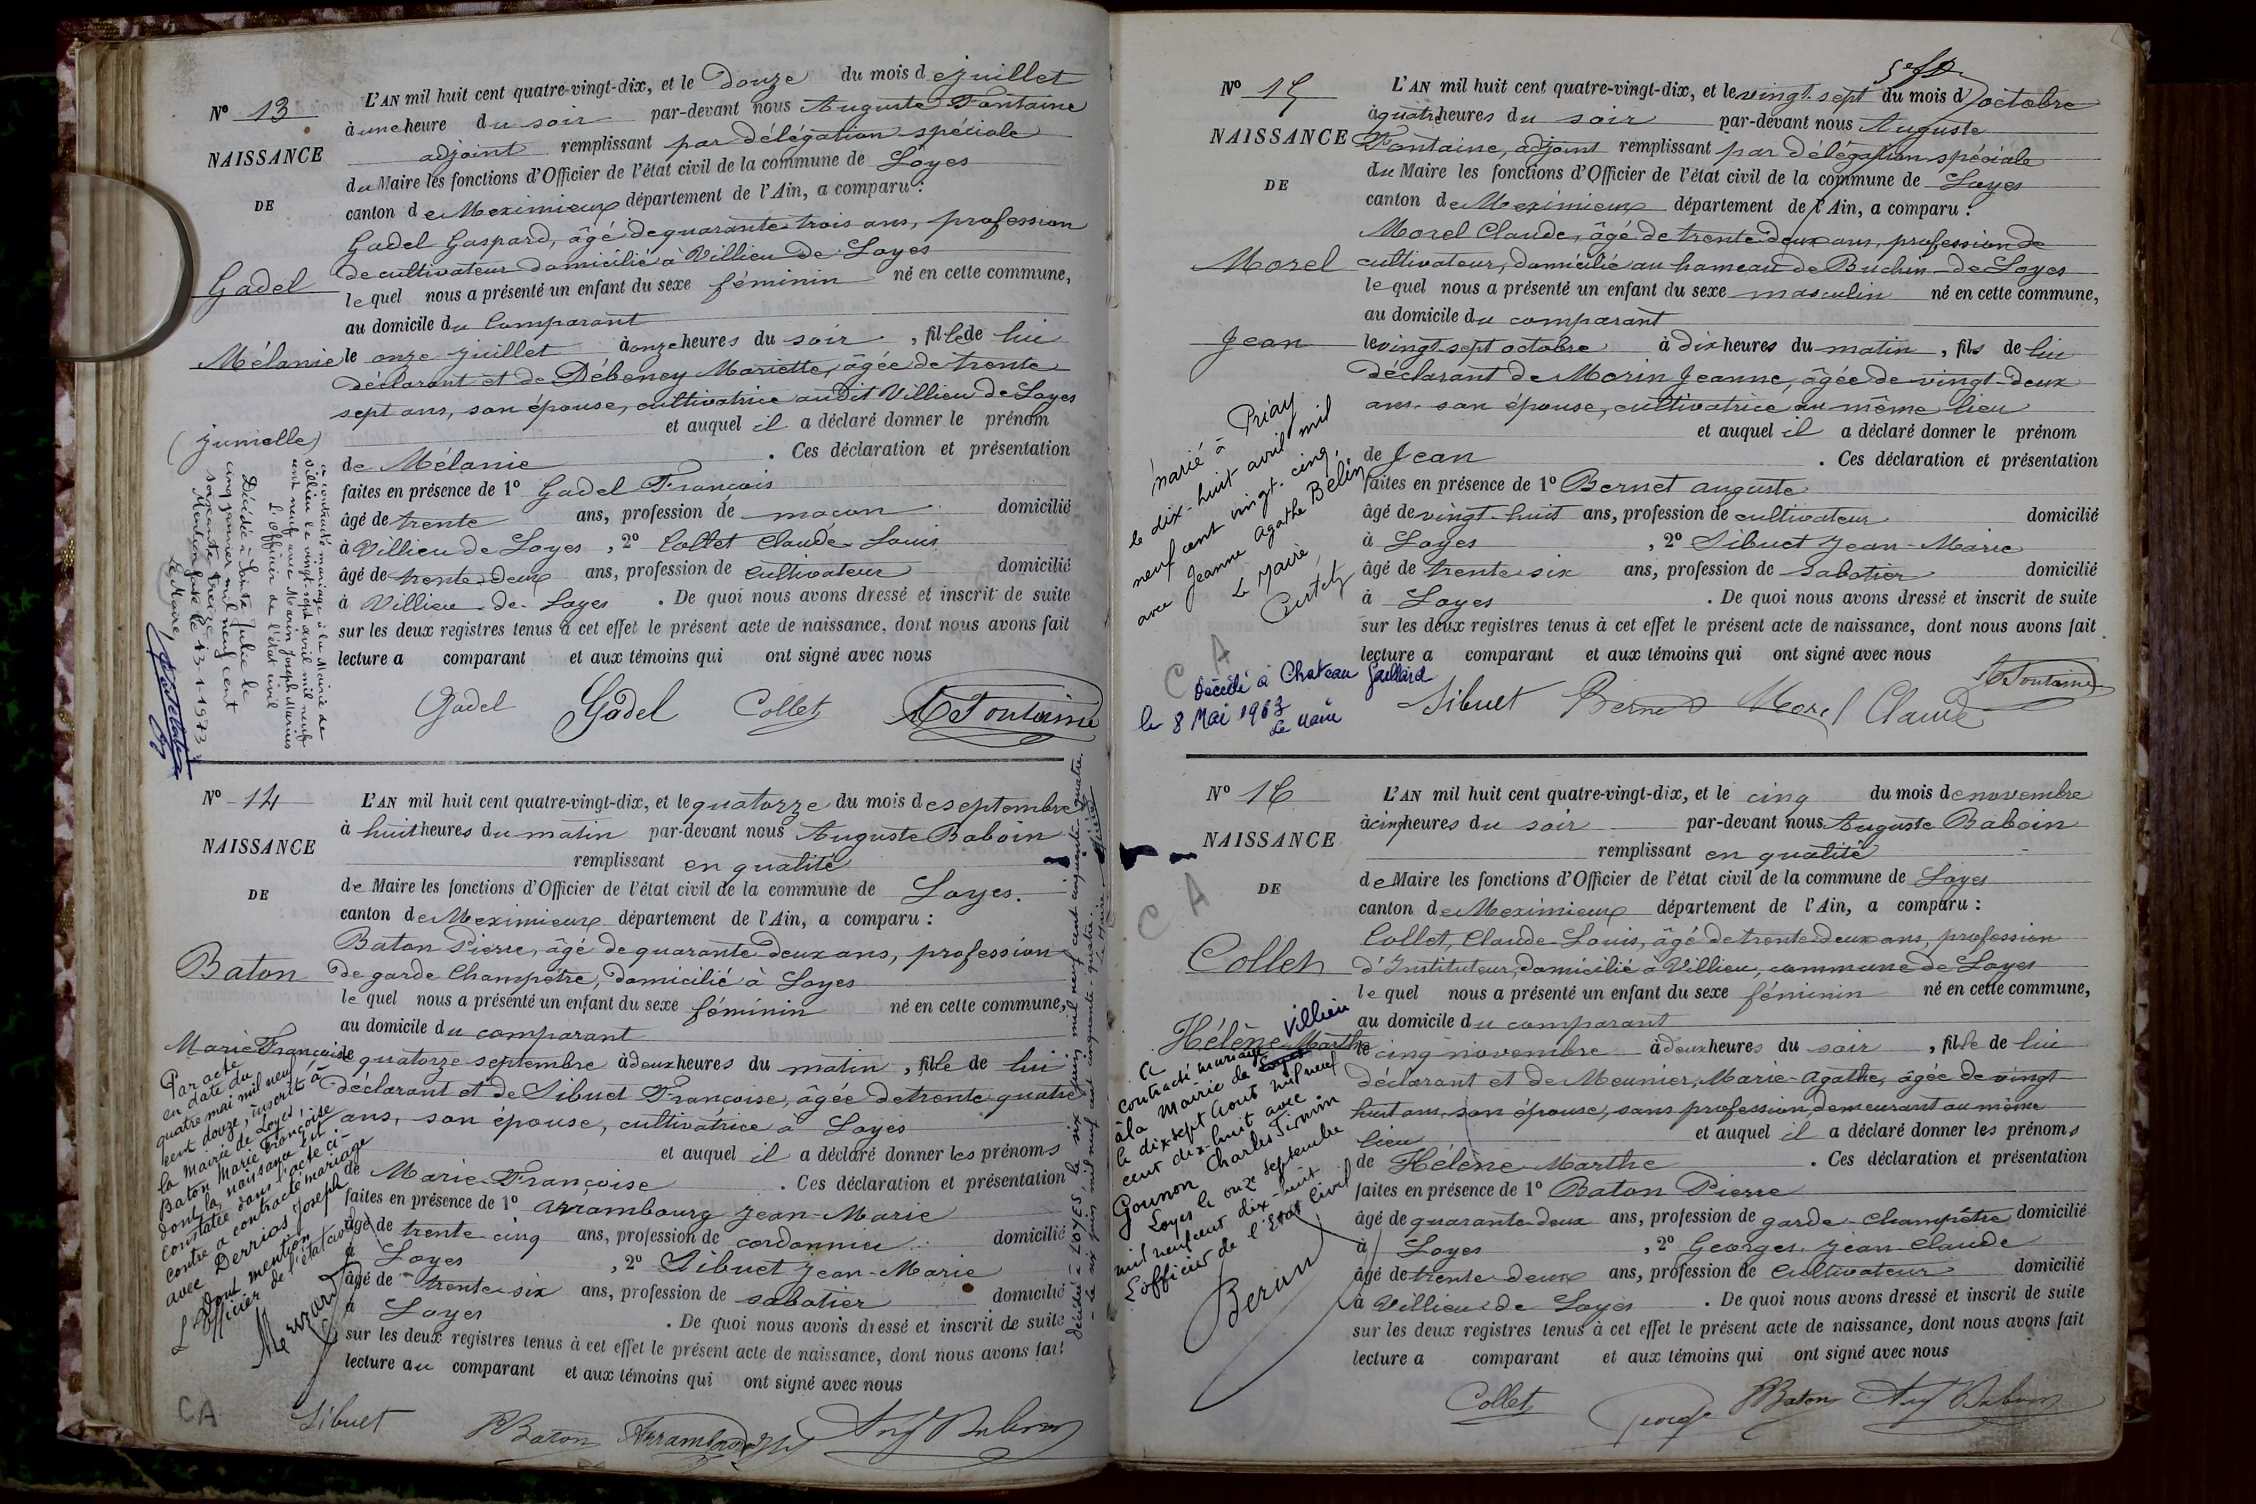 N° 13
NAISSANCE
DE
Gadel
Mélanie
(jumelle)
a contracté mariage à la Mairie de
Villieu le vingt-sept avril mil neuf
cent neuf avec Marin Joseph Marius
L'Officier de l'état civil
Décédée à Sainte Julie le
cinq janvier mil neuf cent
soixante treize
Mention faite le 13-1-1973
Le Maire,
L'AN mil huit cent quatre-vingt-dix, et le Douze du mois de juillet
à une heure du soir par-devant nous Auguste Fontaine
adjoint remplissant par délégation spéciale
du Maire les fonctions d'Officier de l'état civil de la commune de Loyes
canton de Meximieux département de l'Ain, a comparu :
Gadel Gaspard, âgé de quarante trois ans, profession
de cultivateur domicilié à Villieu de Loyes
lequel nous a présenté un enfant du sexe féminin né en cette commune,
au domicile du Comparant
le onze juillet à onze heures du soir, fille de lui
déclarant et de Débeney Mariette, âgée de trente
sept ans, son épouse, cultivatrice audit Villieu de Loyes
et auquel il a déclaré donner le prénom
de Mélanie. Ces déclaration et présentation
faites en présence de 1° Gadel François
âgé de trente ans, profession de maçon domicilié
à Villieu de Loyes, 2° Collet Claude Louis
âgé de trente deux ans, profession de Cultivateur domicilié
à Villieu de Loyes. De quoi nous avons dressé et inscrit de suite
sur les deux registres tenus à cet effet le présent acte de naissance, dont nous avons fait
lecture a comparant et aux témoins qui ont signé avec nous
Gadel Gadel Collet A Fontaine
N° 14
NAISSANCE
DE
Baton
Marie Françoise
Par acte
en date du
quatre mai mil neuf
cent douze, inscrit à
la Mairie de Loyes,
Baton Marie Françoise
dont la naissance est
constatée dans l'acte ci-
contre a contracté mariage
avec Derrias Joseph
Dont mention
L'Officier de l'état civil
L'AN mil huit cent quatre-vingt-dix, et le quatorze du mois de septembre
à huit heures du matin par-devant nous Auguste Baboin
remplissant en qualité
de Maire les fonctions d'Officier de l'état civil de la commune de Loyes.
canton de Meximieux département de l'Ain, a comparu :
Baton Pierre, âgé de quarante deux ans, profession
de garde Champêtre, domicilié à Loyes
lequel nous a présenté un enfant du sexe féminin né en cette commune,
au domicile du comparant
le quatorze septembre à deux heures du matin, fille de lui
déclarant et de Sibuet Françoise, âgée de trente quatre
ans, son épouse, cultivatrice à Loyes
et auquel il a déclaré donner les prénoms
de Marie Françoise. Ces déclaration et présentation
faites en présence de 1° Arrambourg Jean-Marie
âgé de trente cinq ans, profession de cordonnier domicilié
à Loyes, 2° Sibuet Jean-Marie
âgé de trente six ans, profession de sabotier domicilié
à Loyes. De quoi nous avons dressé et inscrit de suite
sur les deux registres tenus à cet effet le présent acte de naissance, dont nous avons fait
lecture au comparant et aux témoins qui ont signé avec nous
CA
Sibuet PBaton Arrambourg Aug Baboin
décédée à LOYES le six juin mil neuf cent cinquante-quatre.
- le six juin mil neuf cent cinquante-quatre.
Le Maire
N° 15
NAISSANCE
DE
Morel
Jean
marié à Priay
le dix-huit avril mil
neuf cent vingt-cinq,
avec Jeanne Agathe Belin
Le Maire,
C A
Décédé à Chateau Gaillard
le 8 Mai 1963
Le Maire
L'AN mil huit cent quatre-vingt-dix, et le vingt sept du mois d'octobre
à quatre heures du soir par-devant nous Auguste
Fontaine, adjoint remplissant par délégation spéciale
du Maire les fonctions d'Officier de l'état civil de la commune de Loyes
canton de Meximieux département de l'Ain, a comparu :
Morel Claude, âgé de trente deux ans, profession de
cultivateur, domicilié au hameau de Buchin de Loyes
lequel nous a présenté un enfant du sexe masculin né en cette commune,
au domicile du comparant
le vingt sept octobre à dix heures du matin, fils de lui
déclarant de Morin Jeanne, âgée de vingt-deux
ans, son épouse, cultivatrice au même lieu
et auquel il a déclaré donner le prénom
de Jean. Ces déclaration et présentation
faites en présence de 1° Bernet Auguste
âgé de vingt huit ans, profession de cultivateur domicilié
à Loyes, 2° Sibuet Jean-Marie
âgé de trente six ans, profession de sabotier domicilié
à Loyes. De quoi nous avons dressé et inscrit de suite
sur les deux registres tenus à cet effet le présent acte de naissance, dont nous avons fait
lecture a comparant et aux témoins qui ont signé avec nous
A Fontaine
Sibuet Bernet Morel Claude
N° 16
NAISSANCE
DE
C A
Collet
Hélène Marthe
A
contracté mariage
à la Mairie de Loyes Villieu
le dix sept Aout mil neuf
cent dix-huit avec
Gounon Charles Firmin
Loyes le onze septembre
mil neuf cent dix-huit
L'officier de l'Etat Civil
L'AN mil huit cent quatre-vingt-dix, et le cinq du mois de novembre
à cinq heures du soir par-devant nous Auguste Baboin
remplissant en qualité
de Maire les fonctions d'Officier de l'état civil de la commune de Loyes
canton de Meximieux département de l'Ain, a comparu :
Collet, Claude-Louis, âgé de trente deux ans, profession
d'Instituteur, domicilié à Villieu, commune de Loyes
lequel nous a présenté un enfant du sexe féminin né en cette commune,
au domicile du comparant
le cinq novembre à deux heures du soir, fille de lui
déclarant et de Meunier, Marie-Agathe, âgée de vingt
huit ans, son épouse, sans profession, demeurant au même
lieu et auquel il a déclaré donner les prénoms
de Hélène Marthe. Ces déclaration et présentation
faites en présence de 1° Baton Pierre
âgé de quarante deux ans, profession de garde-Champêtre domicilié
à Loyes, 2° Georges Jean Claude
âgé de trente deux ans, profession de Cultivateur domicilié
à Villieu de Loyes. De quoi nous avons dressé et inscrit de suite
sur les deux registres tenus à cet effet le présent acte de naissance, dont nous avons fait
lecture a comparant et aux témoins qui ont signé avec nous
Collet George PBaton Aug Baboin